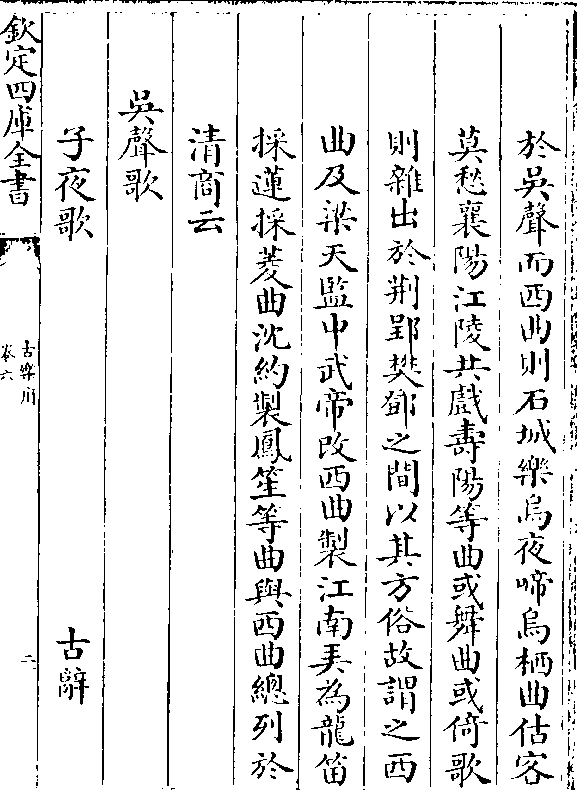 於吳聲而西曲則石城樂烏夜啼烏栖曲估客
莫愁襄陽江陵共戲壽陽等曲或舞曲或倚歌
則雜出於荆郢樊鄧之間以其方俗故謂之西
曲及梁天監中武帝改西曲製江南弄為龍笛
採蓮採菱曲沈約製鳳笙等曲與西曲總列於
清商云
吳聲歌
子夜歌 古辭
欽定四庫全書
古樂府
卷六
二